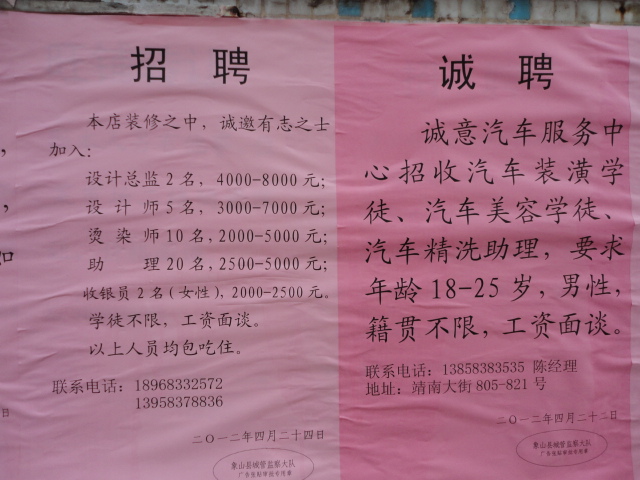 招 聘
本店装修之中，诚邀有志之士
加入：
设计总监2名，4000-8000元；
设计师5名，3000-7000元；
烫染师10名，2000-5000元；
助 理20名，2500-5000元；
收银员2名（女性），2000-2500元。
学徒不限，工资面谈。
以上人员均包吃住。
联系电话：18968332572
13958378836
二〇一二年四月二十四日
象山县城管监察大队
广告张贴审批专用章
诚 聘
诚意汽车服务中
心招收汽车装潢学
徒、汽车美容学徒、
汽车精洗助理，要求
年龄18-25岁，男性，
籍贯不限，工资面谈。
联系电话：13858383535 陈经理
地址：靖南大街805-821号
二〇一二年四月二十二日
象山县城管监察大队
广告张贴审批专用章